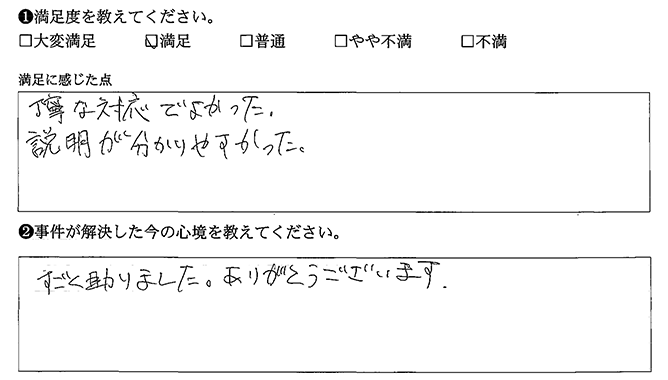 ❶満足度を教えてください。
□大変満足 ☑満足 □普通 □やや不満 □不満
満足に感じた点
丁寧な対応でよかった。
説明が分かりやすかった。
❷事件が解決した今の心境を教えてください。
すごく助りました。ありがとうございます.